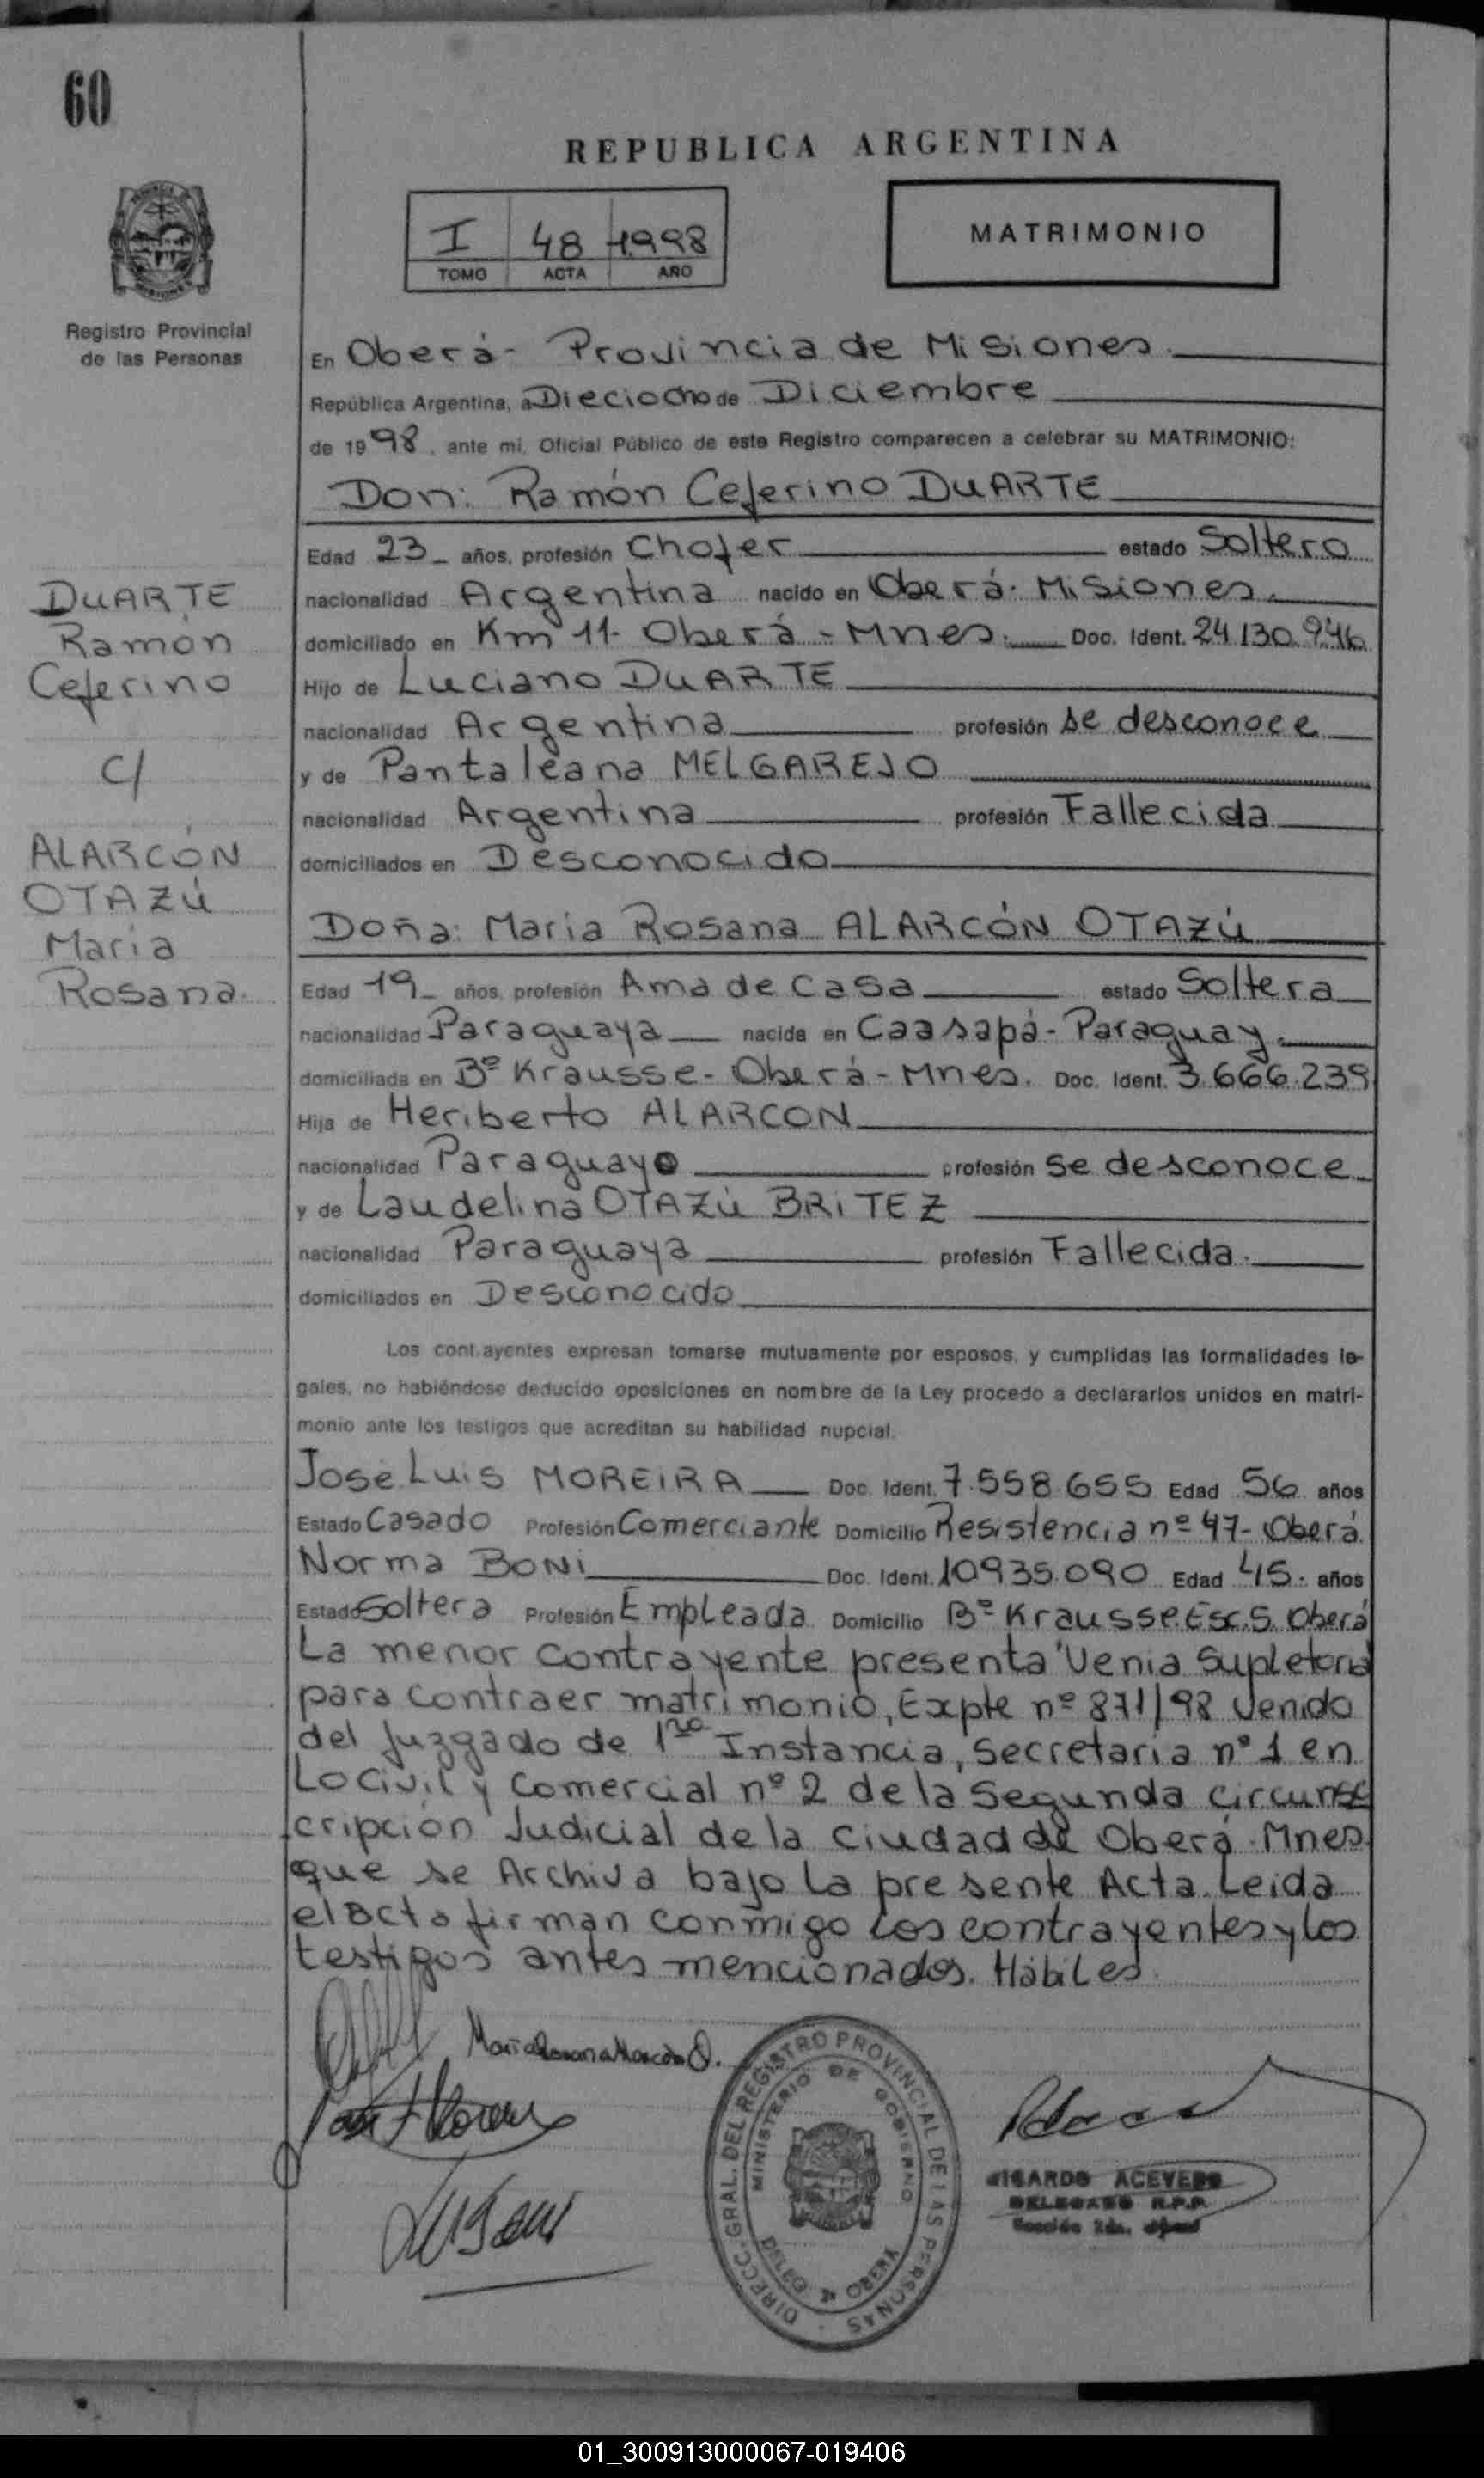 60
REPUBLICA ARGENTINA
I 48 1998
TOMO ACTA AÑO
MATRIMONIO
Registro Provincial
de las Personas
En Oberá - Provincia de Misiones.
República Argentina, a Dieciocho de Diciembre
de 1998, ante mi, Oficial Público de este Registro comparecen a celebrar su MATRIMONIO:
Don: Ramón Ceferino DUARTE
Edad 23 años, profesión Chofer estado Soltero
nacionalidad Argentina nacido en Oberá - Misiones.
domiciliado en Km 11 - Oberá - Mnes. Doc. Ident. 24.130.946
Hijo de Luciano DUARTE
nacionalidad Argentina profesión se desconoce
y de Pantaleana MELGAREJO
nacionalidad Argentina profesión Fallecida
domiciliados en Desconocido
DUARTE
Ramón
Ceferino
C/
ALARCÓN
OTAZÚ
Maria
Rosana.
Doña: Maria Rosana ALARCÓN OTAZÚ
Edad 19 años, profesión Ama de Casa estado Soltera
nacionalidad Paraguaya nacida en Caasapá - Paraguay.
domiciliada en Bº Krausse - Oberá - Mnes. Doc. Ident. 3.666.239
Hija de Heriberto ALARCON
nacionalidad Paraguayo profesión se desconoce
y de Laudelina OTAZÚ BRITEZ
nacionalidad Paraguaya profesión Fallecida.
domiciliados en Desconocido
Los contrayentes expresan tomarse mutuamente por esposos, y cumplidas las formalidades le-
gales, no habiéndose deducido oposiciones en nombre de la Ley procedo a declararlos unidos en matri-
monio ante los testigos que acreditan su habilidad nupcial.
José Luis MOREIRA Doc. Ident. 7.558.655 Edad 56 años
Estado Casado Profesión Comerciante Domicilio Resistencia nº 47 - Oberá
Norma BONI Doc. Ident. 10935.090 Edad 45. años
Estado Soltera Profesión Empleada Domicilio Bº Krausse. Esc. S. Oberá
La menor contrayente presenta "Venia Supletoria
para contraer matrimonio, Expte nº 871/98 venido
del Juzgado de 1ra Instancia, Secretaria nº 1 en
Lo Civil y Comercial nº 2 de la Segunda Circuns
cripción Judicial de la Ciudad de Oberá - Mnes.
que se Archiva bajo la presente Acta. Leida
el acto firman conmigo los contrayentes y los
testigos antes mencionados. Hábiles.
Maria Rosana Alarcón O.
DIRECC. GRAL. DEL REGISTRO PROVINCIAL DE LAS PERSONAS
MINISTERIO DE GOBIERNO
DELEG OBERA
RICARDO ACEVEDO
DELEGADO R.P.P.
01_300913000067-019406